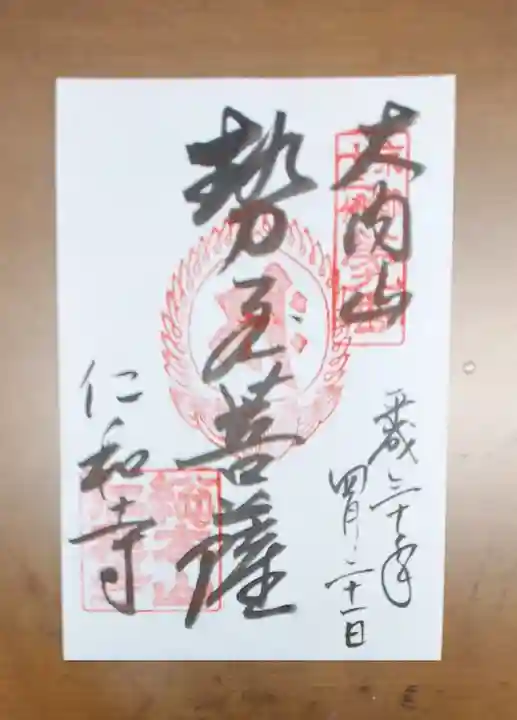 大内山
平成三十年
四月二十一日
勢至菩薩
仁和寺